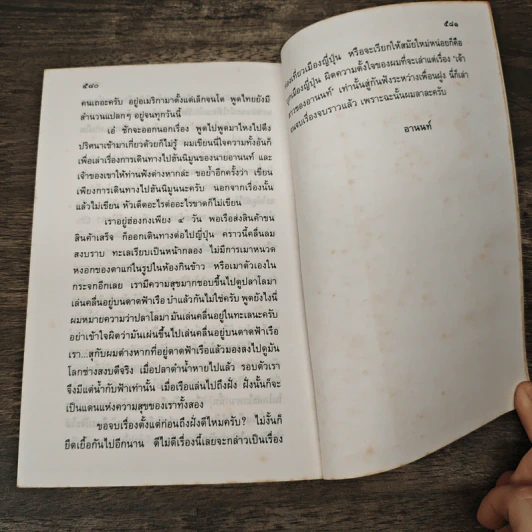 ๕๘๐
คนเถอะครับ อยู่อเมริกามาตั้งแต่เล็กจนโต พูดไทยยังมี
สำนวนแปลกๆ อยู่จนทุกวันนี้
เอ๋ ชักจะออกนอกเรื่อง พูดไปพูดมาไหงไปดึง
ปริศนาเข้ามาเกี่ยวด้วยก็ไม่รู้ ผมเขียนนี่ใจความทั้งอันก็
เพื่อเล่าเรื่องการเดินทางไปฮันนีมูนของนายอานนท์ และ
เจ้าของเขาให้ท่านฟังต่างหากล่ะ ขอย้ำอีกครั้งว่า เขียน
เพียงการเดินทางไปฮันนีมูนนะครับ นอกจากเรื่องนั้น
แล้วไม่เขียน หัวเด็ดอะไรต่ออะไรขาดก็ไม่เขียน
เราอยู่ฮ่องกงเพียง ๔ วัน พอเรือส่งสินค้าขน
สินค้าเสร็จ ก็ออกเดินทางต่อไปญี่ปุ่น คราวนี้คลื่นลม
สงบราบ ทะเลเรียบเป็นหน้ากลอง ไม่มีการเมาหนวด
หงอกของตาแก่ในรูปในห้องกินข้าว หรือเมาตัวเองใน
กระจกอีกเลย เรามีความสุขมากชอบขึ้นไปดูปลาโลมา
เล่นคลื่นอยู่บนดาดฟ้าเรือ บ๋าแล้วกันไม่ใช่ครับ พูดยังไงนี่
ผมหมายความว่าปลาโลมามันเล่นคลื่นอยู่ในทะเลนะครับ
อย่าเข้าใจผิดว่ามันเผ่นขึ้นไปเล่นคลื่นอยู่บนดาดฟ้าเรือ
เรา...สุกับผมต่างหากที่อยู่ดาดฟ้าเรือแล้วมองลงไปดูมัน
โลกช่างสงบดีจริง เมื่อปลาดำน้ำหายไปแล้ว รอบตัวเรา
จึงมีแต่น้ำกับฟ้าเท่านั้น เมื่อเรือแล่นไปถึงฝั่ง ฝั่งนั้นก็จะ
เป็นแดนแห่งความสุขของเราทั้งสอง
ขอจบเรื่องตั้งแต่ก่อนถึงฝั่งดีไหมครับ? ไม่งั้นก็
ยืดเยื้อกันไปอีกนาน ดีไม่ดีเรื่องนี้เลยจะกล่าวเป็นเรื่อง
๕๘๑
เที่ยวเมืองญี่ปุ่น หรือจะเรียกให้สมัยใหม่หน่อยก็คือ
เมืองญี่ปุ่น ผิดความตั้งใจของผมที่จะเล่าแต่เรื่อง 'เจ้า
ของอานนท์' เท่านั้นสู่กันฟังระหว่างเพื่อนฝูง นี่ก็เล่า
จบเรื่องจบราวแล้ว เพราะฉะนั้นผมลาละครับ
อานนท์